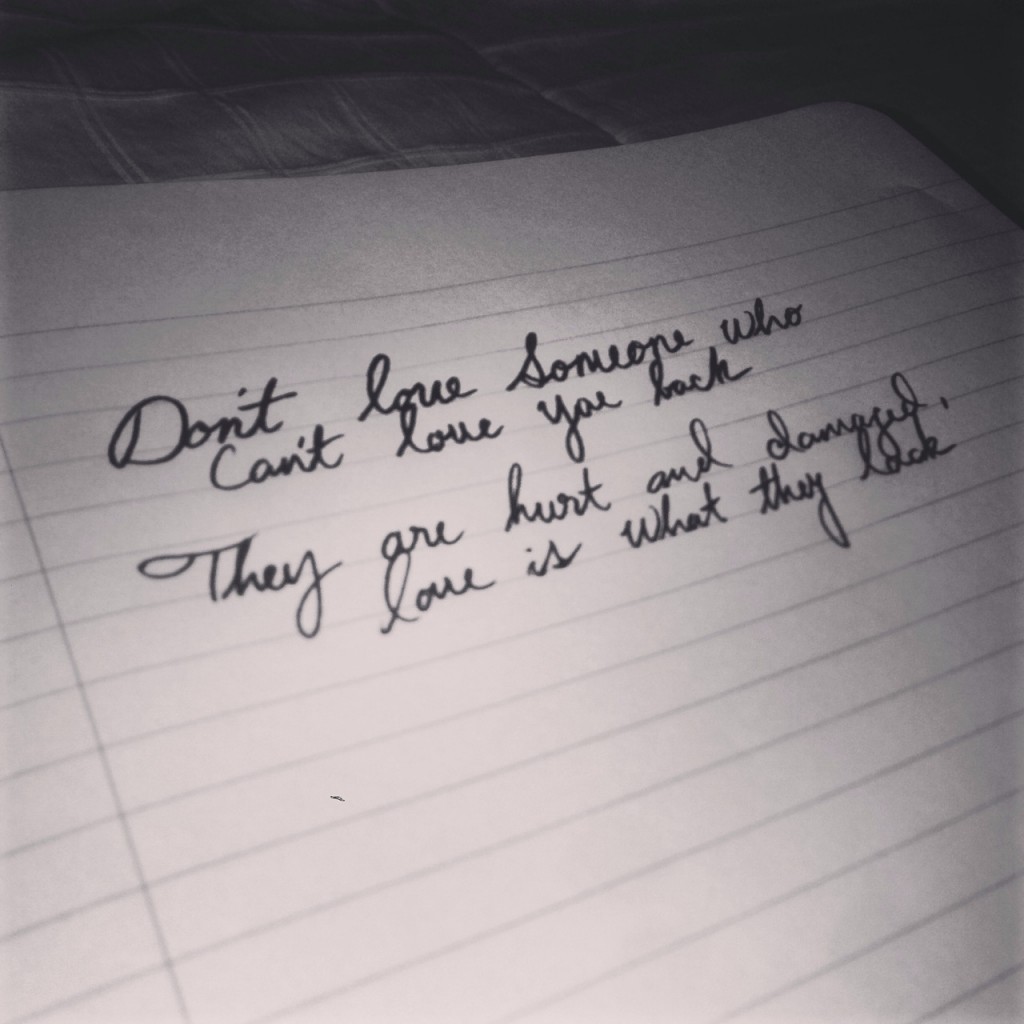 Don't love someone who
Can't love you back
They are hurt and damaged,
love is what they lack